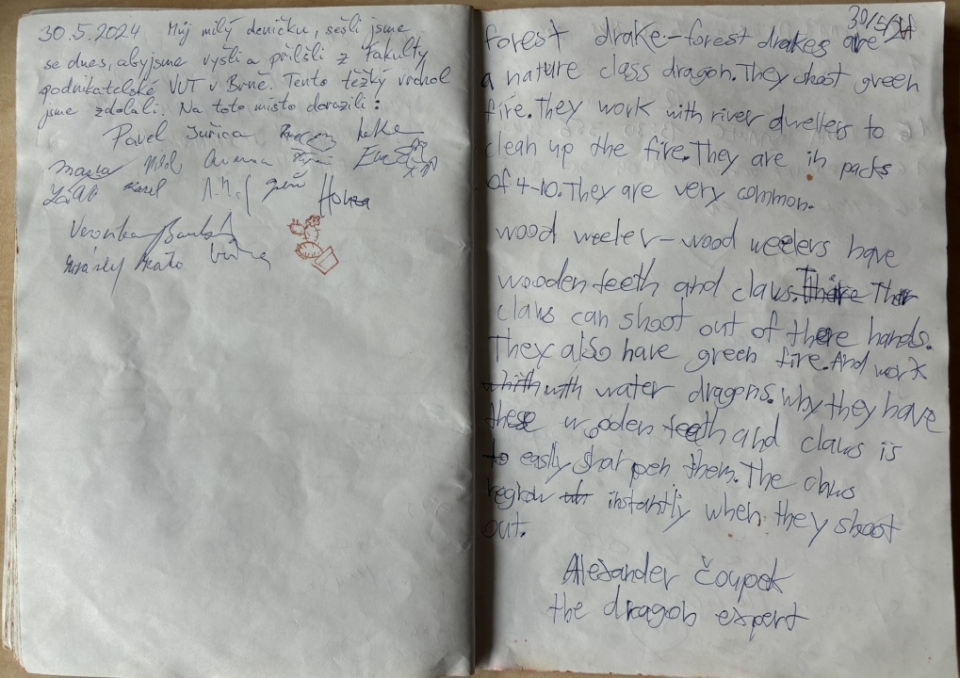 30.5.2024 Můj milý deníčku, sešli jsme
se dnes, abyjsme vyšli a přišli z fakulty
podnikatelské VUT v Brně. Tento těžký vrchol
jsme zdolali. Na toto místo dorazili:
Pavel Juřica
Karel
Honza
Veronika
30/5/24
forest drake-forest drakes are
a nature class dragon. They shoot green
fire. They work with river dwellers to
clean up the fire. They are in packs
of 4-10. They are very common.
wood weeler- wood weelers have
wooden teeth and claws.
claws can shoot out of there hands.
They also have green fire. And work
with water dragons. Why they have
these wooden teeth and claws is
to easily sharpen them. The claws
regrow instantly when they shoot
out.
Alexander Čoupek
the dragon expert